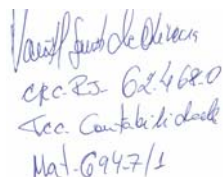 Santos de Oliveira
CRC-RJ- 62.468.0
Tec. Contabilidade
Mat. 6947/1